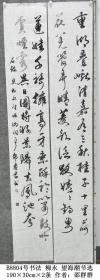 重湖叠巘清嘉有三秋桂子十里
荷花羌管弄晴菱歌泛夜嬉嬉钓叟
莲娃千骑拥高牙乘醉听箫鼓吟赏
烟霞异日图将好景归去凤池夸
B8804号书法 柳永 望海潮节选
190×30cm×2条 作者：邵群群